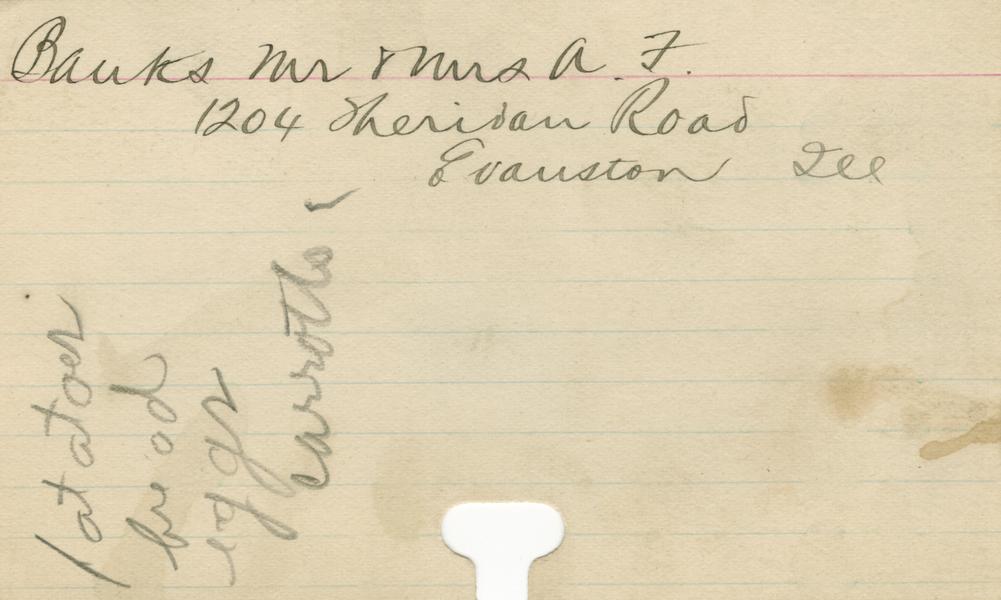 Banks Mr & Mrs A. F.
1204 Sheridan Road
Evanston Ill
Patatoes
bread
eggs
carrotts ✓